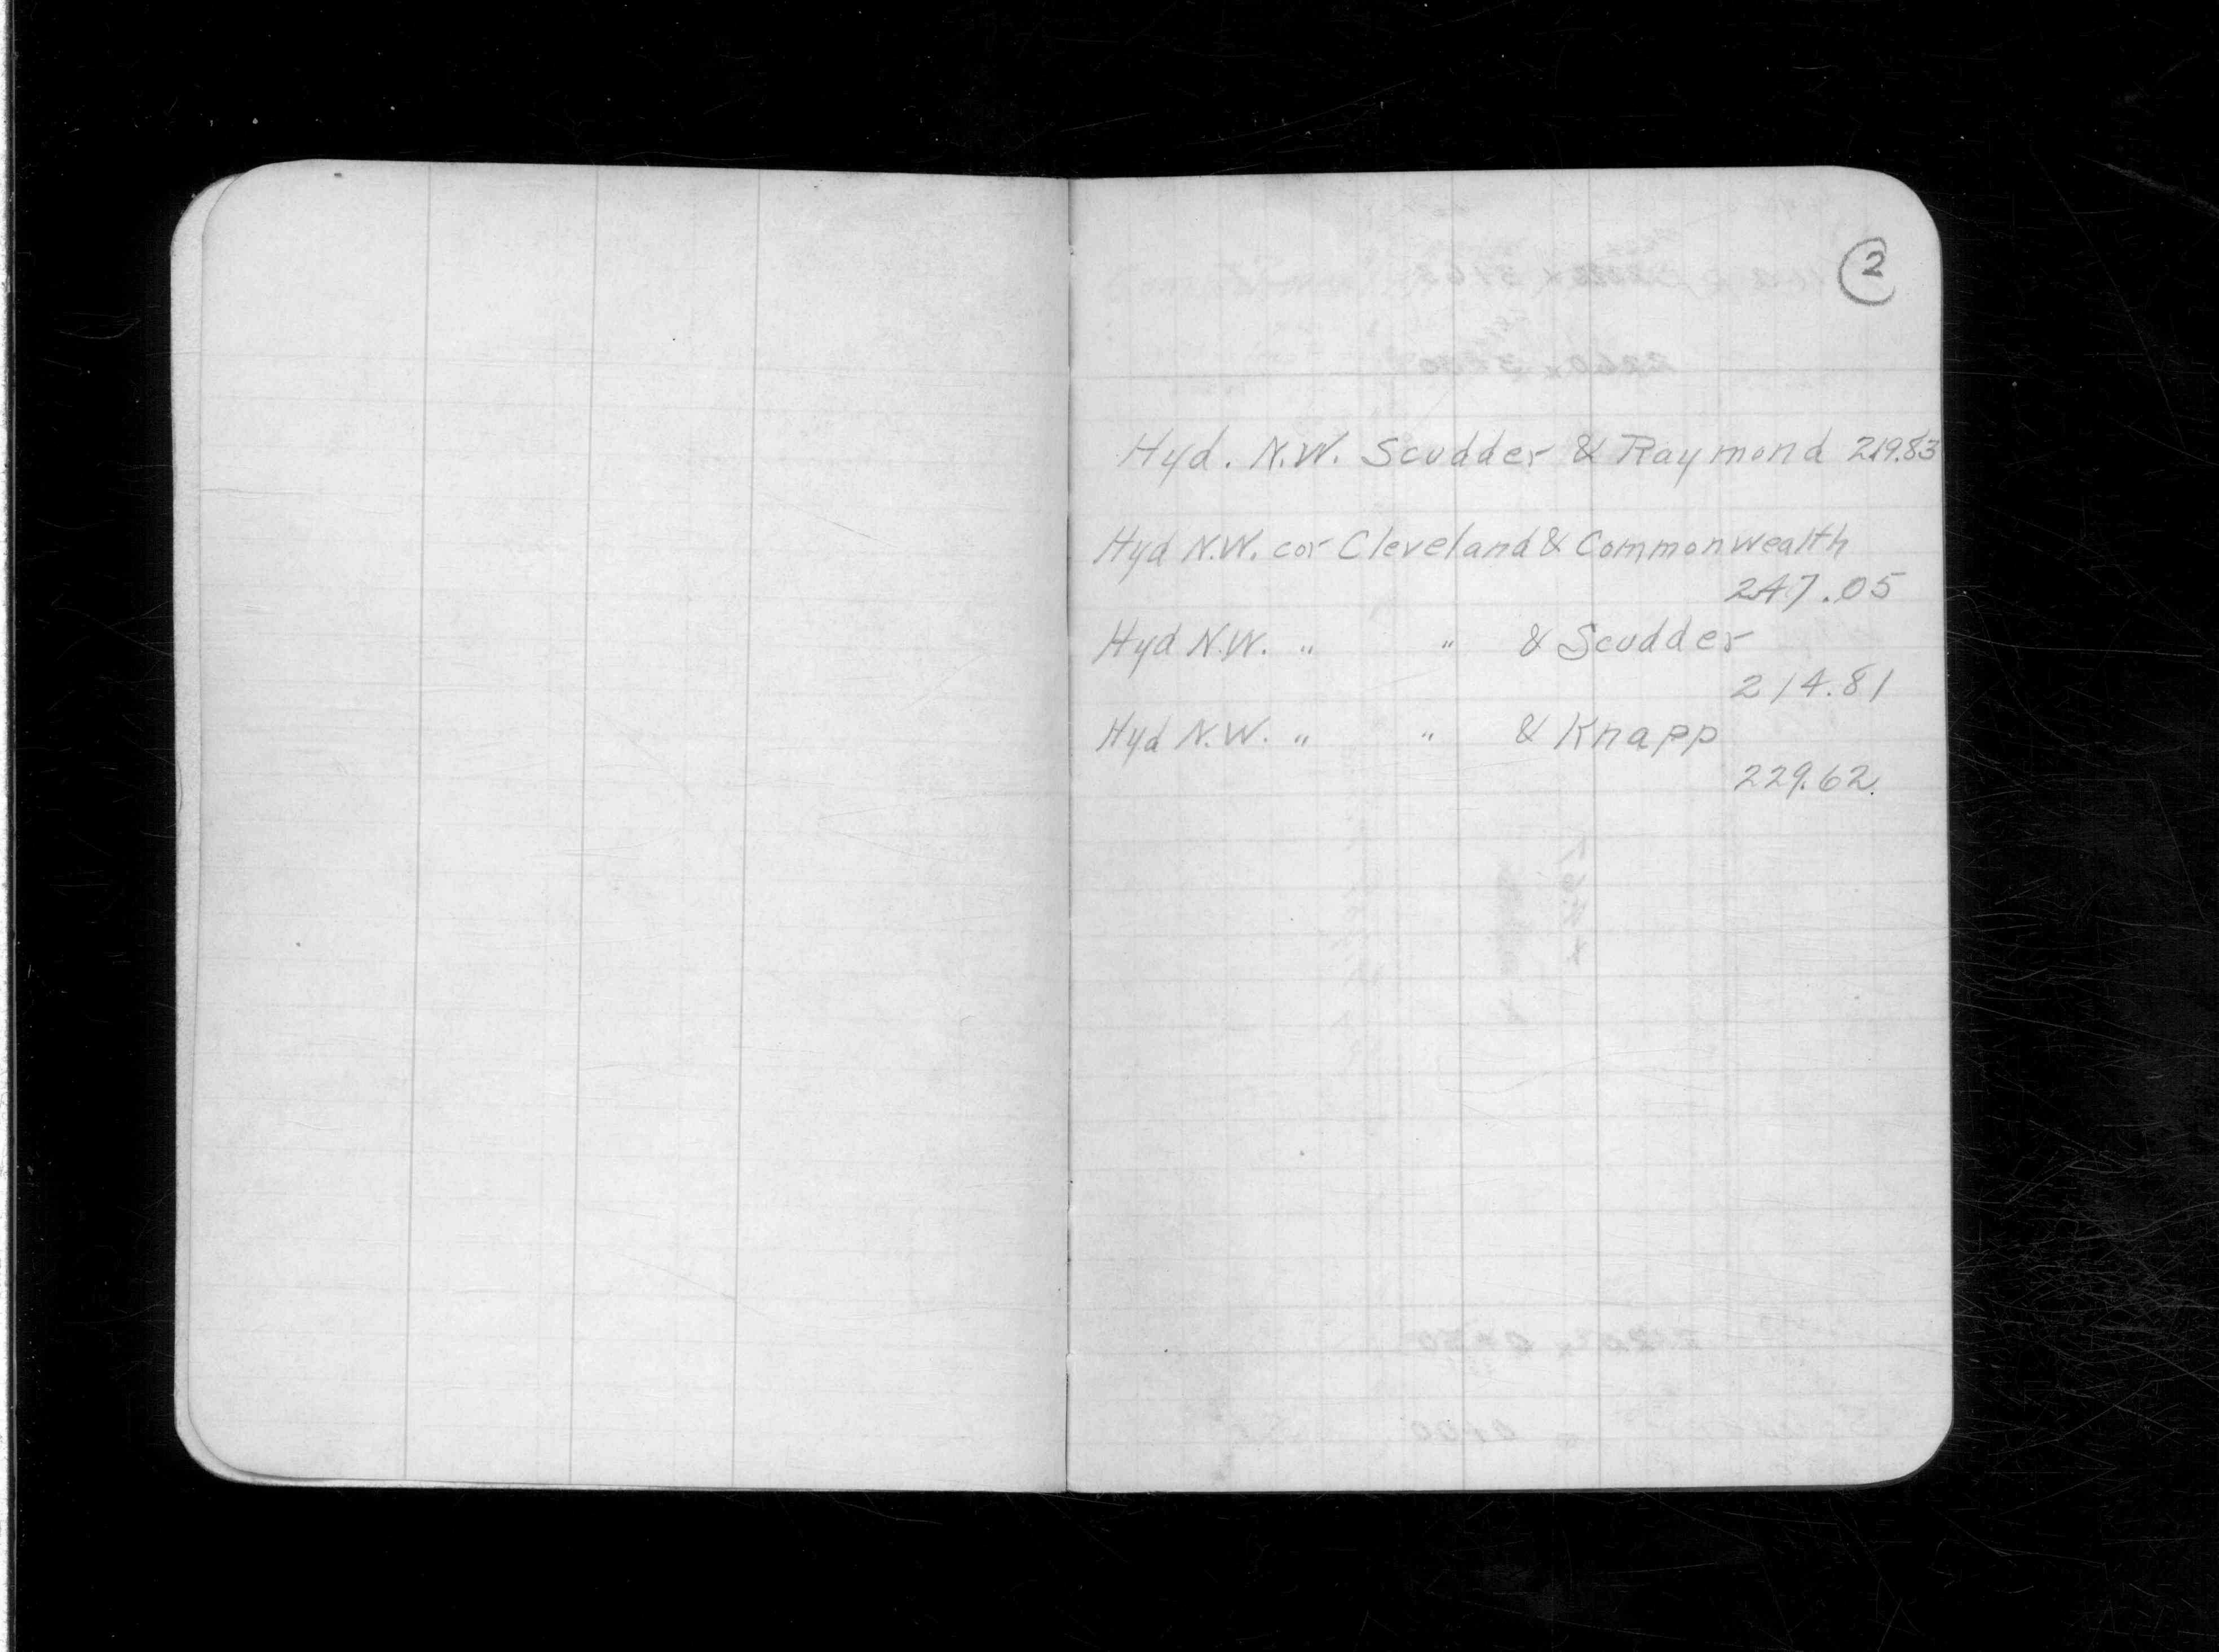 2
Hyd. N.W. Scudder & Raymond 219.83
Hyd N.W. cor Cleveland & Commonwealth
247.05
Hyd N.W. " " & Scudder
214.81
Hyd N.W. " " & Knapp
229.62.